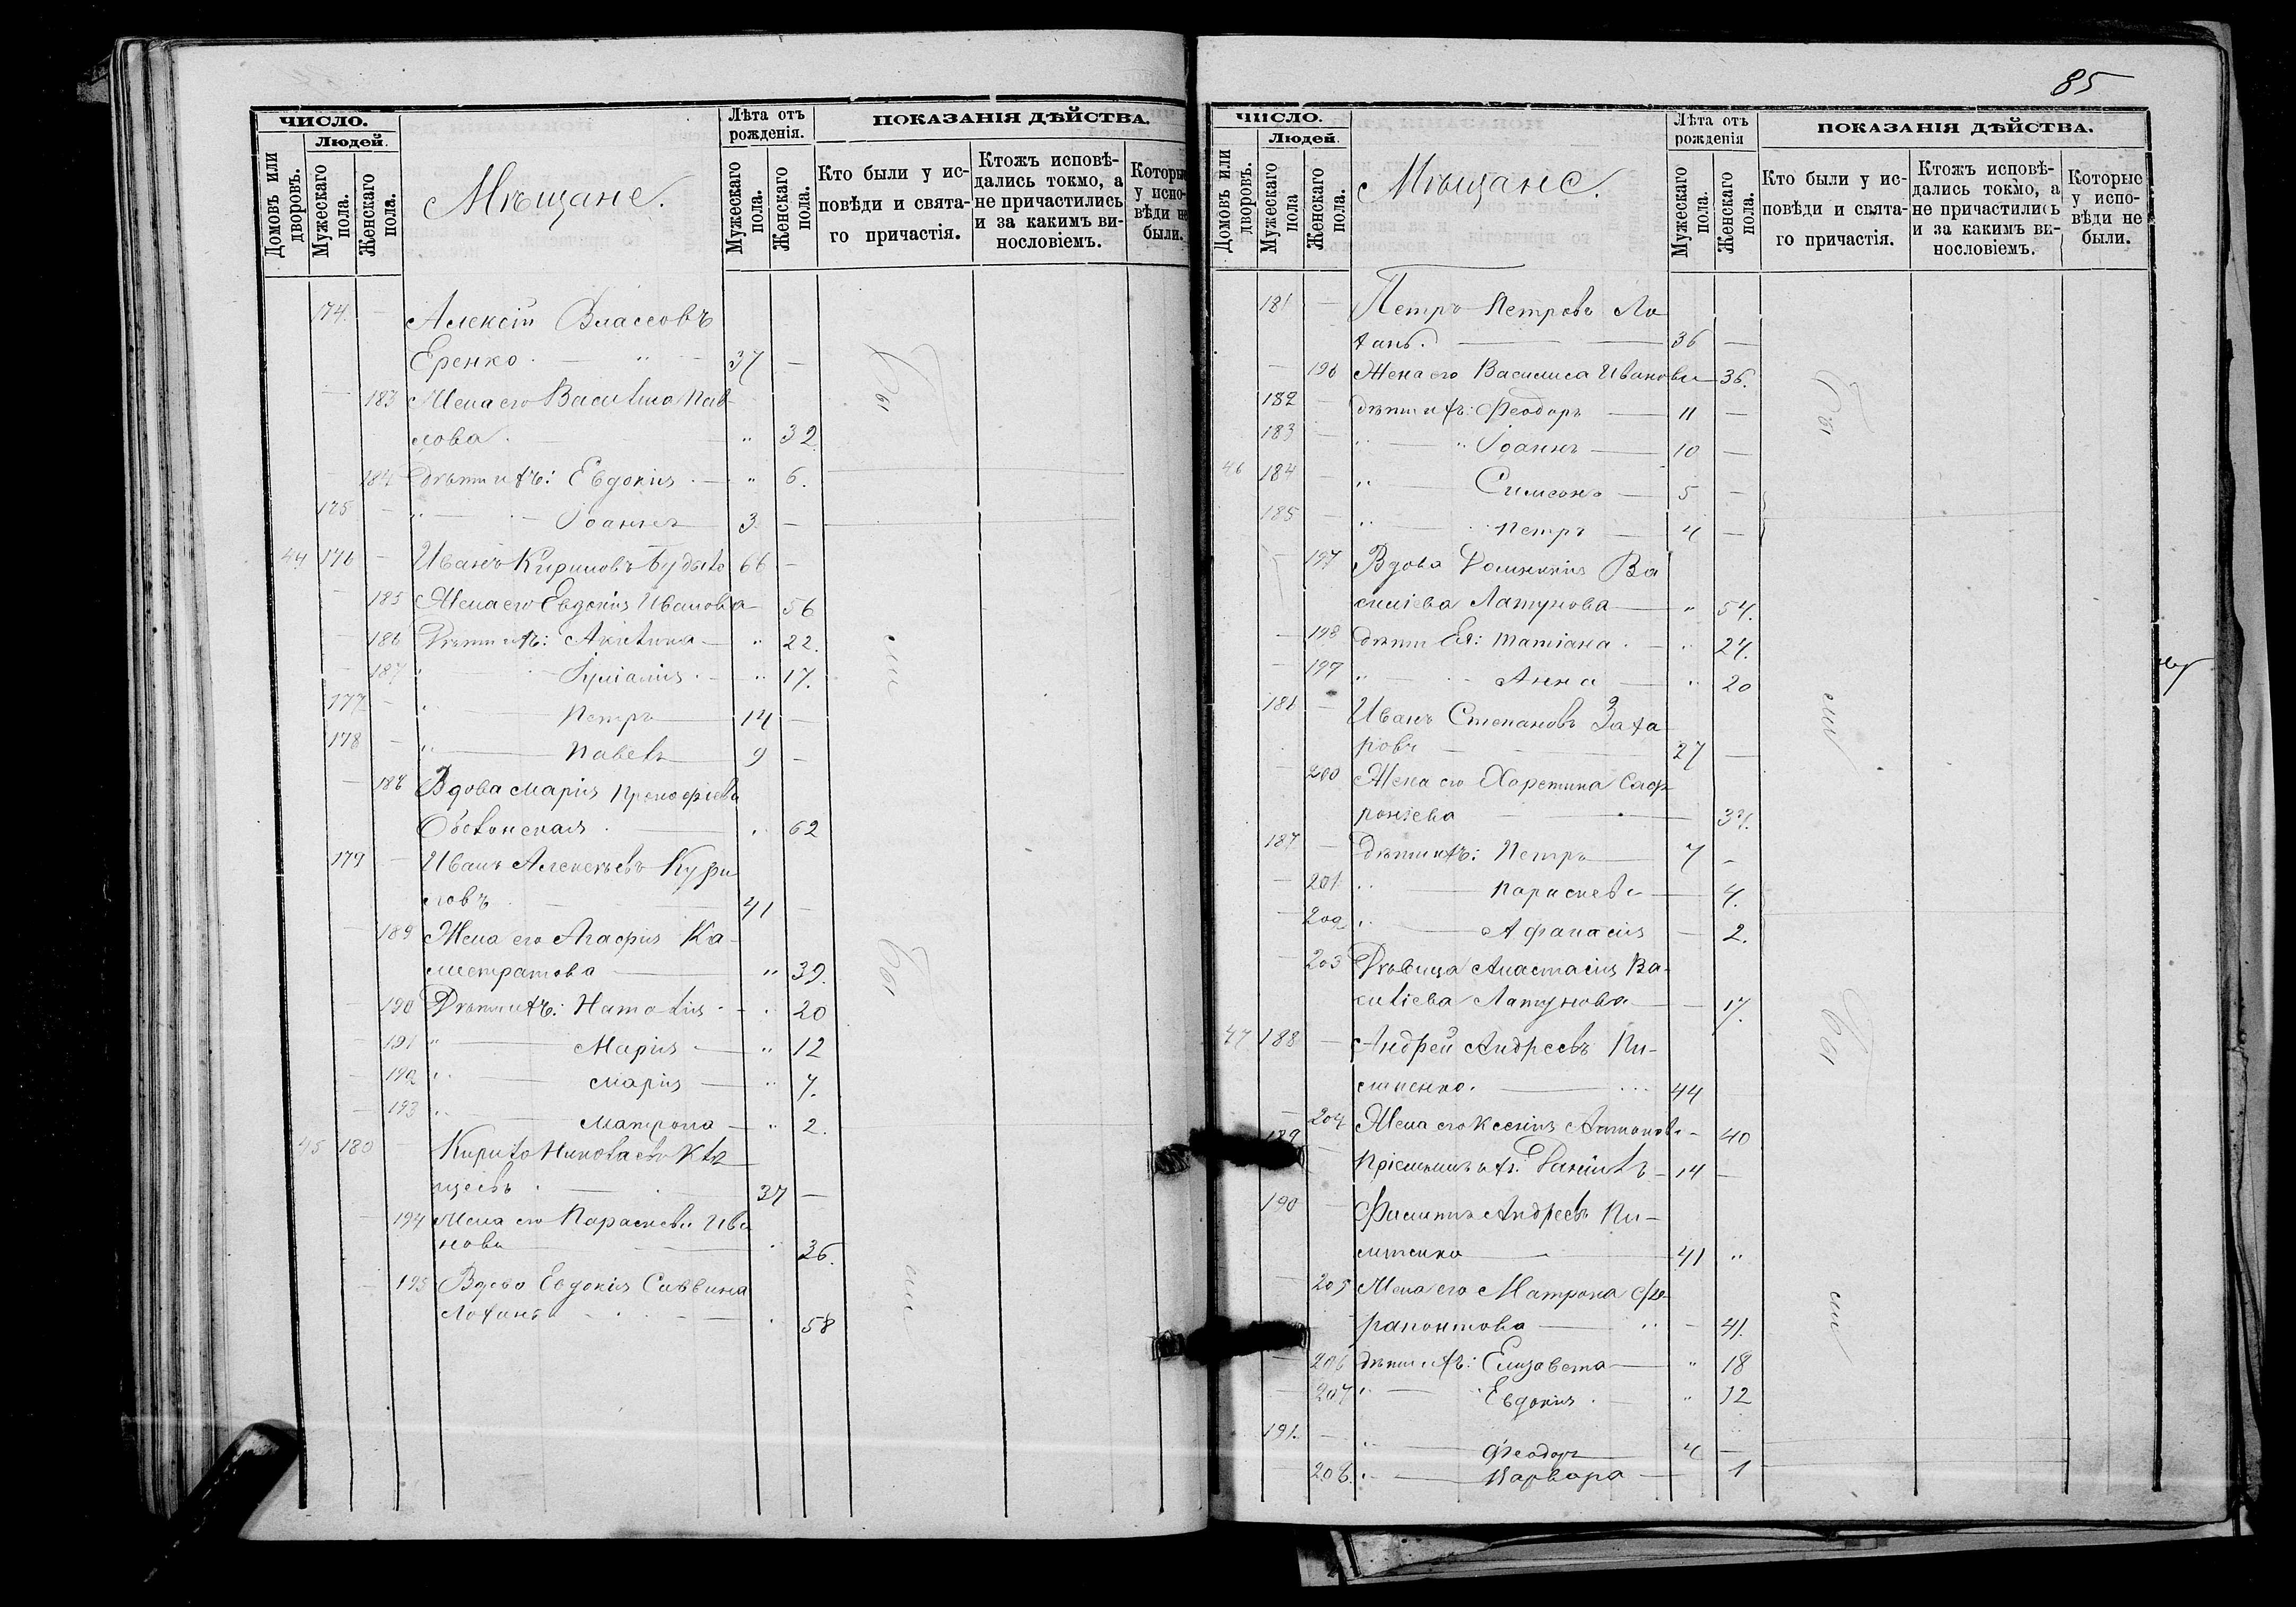 ЧИСЛО.
Людей.
Домовъ или дворовъ.
Мужескаго пола.
Женскаго пола.
Мѣщане.
Лѣта отъ рожденія.
Мужескаго пола.
Женскаго пола.
ПОКАЗАНІЯ ДѢЙСТВА.
Кто были у ис-
повѣди и свята-
го причастія.
Ктожъ исповѣ-
дались токмо, а
не причастились
и за какимъ ви-
нословіемъ.
Которые
у испо-
вѣди не
были.
174. — Алексій Власовъ
Еренко. — „ — 37 —
— 183 Жена его Василиса Пав-
лова. „ 32
— 184 Дѣти ихъ: Евдокія. — „ 6.
175 — „ — Іоаннъ 3 —
44 176 — Иванъ Кириловъ 66 —
— 185 Жена его Евдокія Иванова — 56
— 186 Дѣти ихъ: Акилина — „ 22.
— 187 „ — Іуліанія. — „ 17.
177 — „ — Петръ 14 —
178 — „ — Павелъ 9 —
— 188 Вдова Марія Прокофіева
62
179 — Иванъ Алексѣевъ Кури
ловъ 41 —
— 189 Жена его Агафія Ка-
листратова „ 39.
— 190 Дѣти ихъ: Наталія — „ 20
— 191 „ — Марія — „ 12
— 192 „ — Марія — „ 7.
— 193 „ — Матрона — „ 2.
45 180 Кирило Николаевъ Кла
щевъ. — 37 —
— 194 Жена его Параскева Ива
нова „ 36.
— 195 Вдова Евдокія Саввина
Лоханъ „ 58
Бы
ли
Бы
ли
85
ЧИСЛО.
Людей.
Домовъ или дворовъ.
Мужескаго пола
Женскаго пола.
Мѣщане.
Лѣта отъ рожденія
Мужескаго пола.
Женскаго пола.
ПОКАЗАНІЯ ДѢЙСТВА.
Кто были у ис-
повѣди и свята-
го причастія.
Ктожъ исповѣ-
дались токмо, а
не причастились
и за какимъ ви-
нословіемъ.
Которые
у испо-
вѣди не
были.
181 — Петръ Петровъ Ло
ханъ. — 36 —
— 196 Жена его Василиса Иванова — 36.
182 — Дѣти ихъ: Феодоръ — 11 —
183 — „ — Іоаннъ — 10 —
46 184 — „ — Симеонъ — 5 —
185 — „ — Петръ — 4 —
— 197 Вдова Домникія Ва
силіева Латунова — „ 54.
— 198 Дѣти Ея: Татіана. — „ 24.
— 199 „ — Анна — „ 20
186 — Иванъ Степановъ Заха
ровъ — 27 —
— 200 Жена его Харетина Соф
роніева —
187 — Дѣти ихъ: Петръ — 7 —
— 201 „ — Параскева — 4.
— 202 „ — Афанасія — 2.
— 203 Дѣвица Анастасія Ва-
силіева Латунова — 17.
47 188 — Андрей Андреевъ Пи-
липенко. — 44
— 204 Жена его Ксенія Антонова — 40
189 — Пріемышъ ихъ: Даніилъ — 14 —
190 Филиппъ Андреевъ Пи-
липенко — 41 „
— 205 Жена его Матрона Фе-
рапонтова — 41.
— 206 Дѣти ихъ: Елизавета — „ 18
— 207 „ — Евдокія. — „ 12
191. — „ — Феодоръ 4 —
— 208. „ — Варвара — 1
Бы
ли
Бы
ли